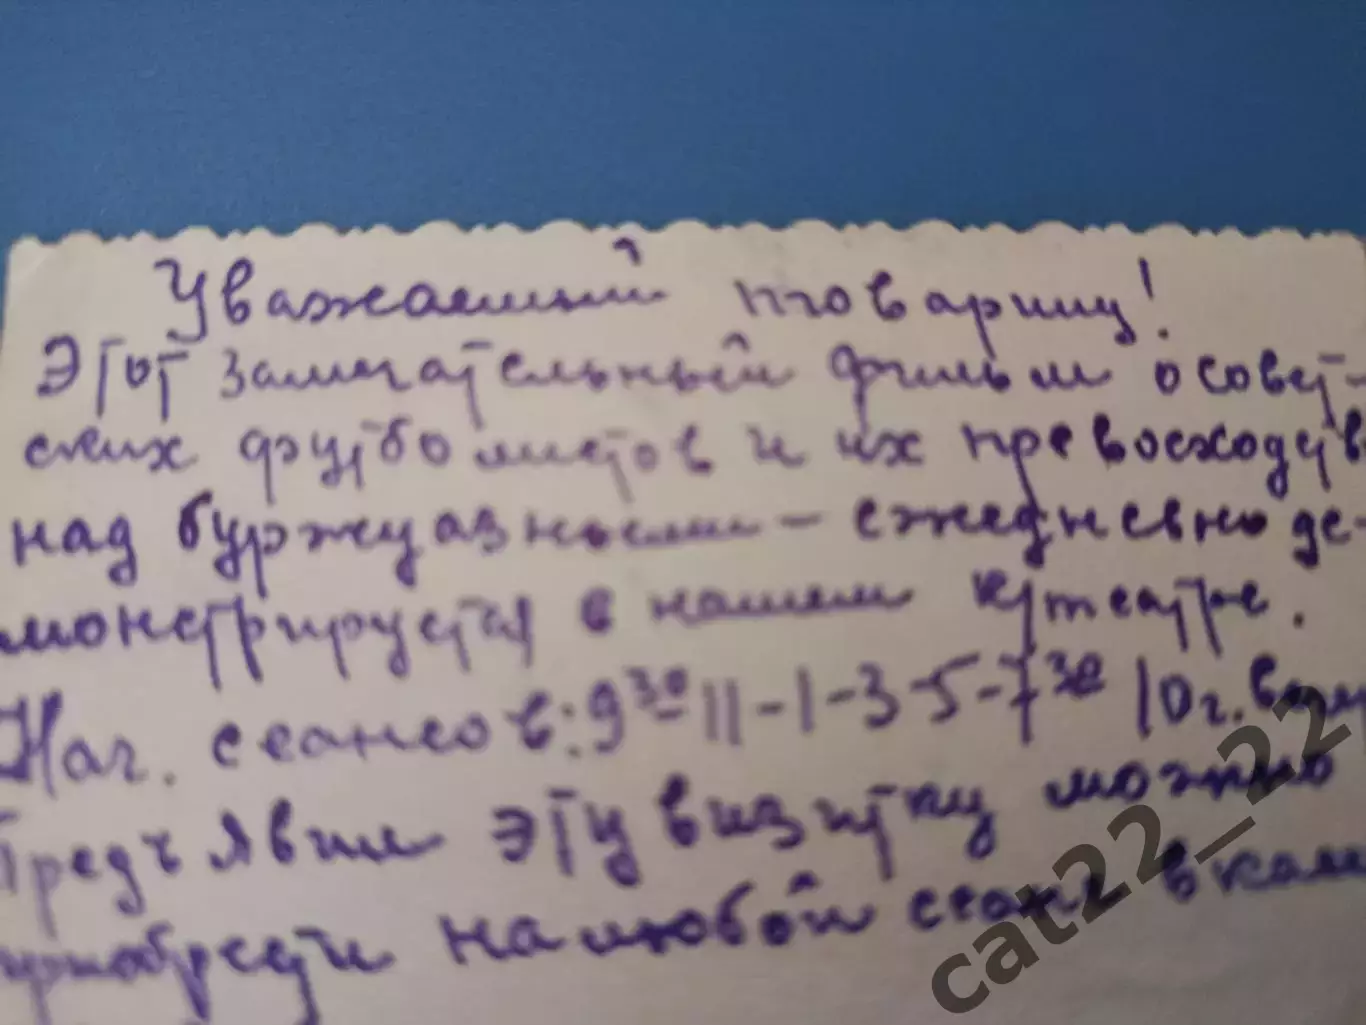 Уважаемый товарищ!
Этот замечательный фильм о совет-
ских футболистов и их превосходств
над буржуазными – ежедневно де-
монстрируется в нашем к/театре.
Нач. сеансов: 9³⁰ 11-1-3-5-7³⁰ 10 г. веч
Предъявив эту визитку можно
приобрести на любой сеанс в кас
cat22_22